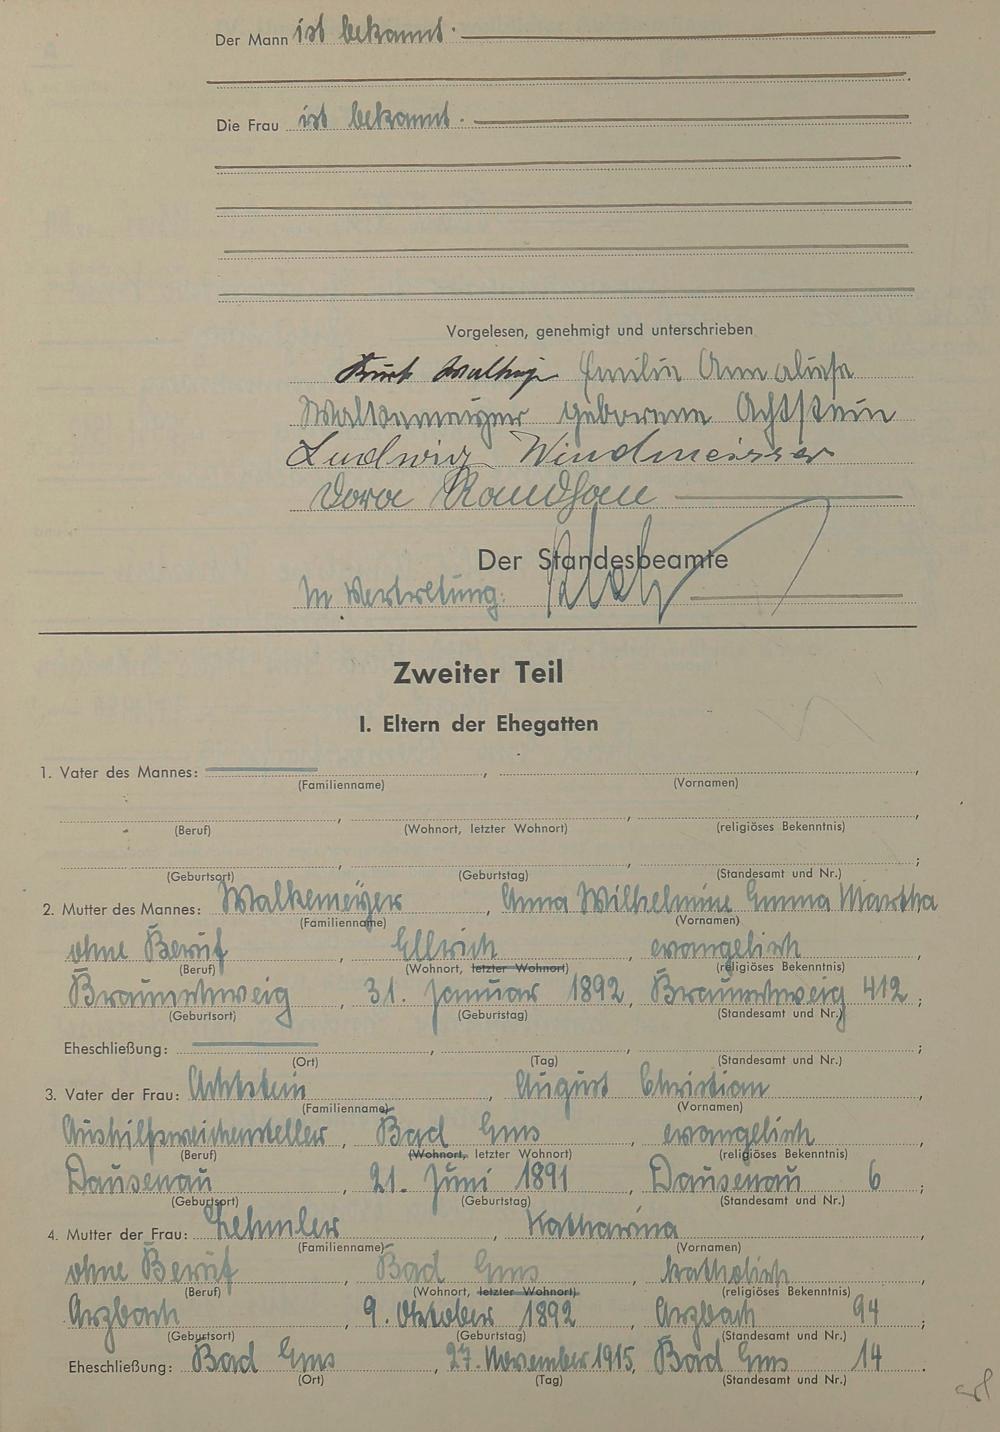 Der Mann ist bekannt.
Die Frau ist bekannt.
Vorgelesen, genehmigt und unterschrieben
Kurt Emilie Anneliese
Walkemeyer geborene Achtstein
Ludwig Windmeisser
Dora Randhan
Der Standesbeamte
In Vertretung:
Zweiter Teil
I. Eltern der Ehegatten
1. Vater des Mannes: , ,
(Familienname) (Vornamen)
, , ,
(Beruf) (Wohnort, letzter Wohnort) (religiöses Bekenntnis)
, , ;
(Geburtsort) (Geburtstag) (Standesamt und Nr.)
2. Mutter des Mannes: Walkemeyer, Anna Wilhelmine Emma Martha
(Familienname) (Vornamen)
ohne Beruf, Ellrich, evangelisch,
(Beruf) (Wohnort, letzter Wohnort) (religiöses Bekenntnis)
Braunschweig, 31. Januar 1892, Braunschweig 412;
(Geburtsort) (Geburtstag) (Standesamt und Nr.)
Eheschließung: , , ;
(Ort) (Tag) (Standesamt und Nr.)
3. Vater der Frau: Achtstein, August Christian,
(Familienname) (Vornamen)
Aushilfsweichensteller, Bad Ems, evangelisch,
(Beruf) (Wohnort, letzter Wohnort) (religiöses Bekenntnis)
Dausenau, 21. Juni 1891, Dausenau 6;
(Geburtsort) (Geburtstag) (Standesamt und Nr.)
4. Mutter der Frau: Lehmler, Katharina,
(Familienname) (Vornamen)
ohne Beruf, Bad Ems, katholisch,
(Beruf) (Wohnort, letzter Wohnort) (religiöses Bekenntnis)
Arzbach, 9. Oktober 1892, Arzbach 94;
(Geburtsort) (Geburtstag) (Standesamt und Nr.)
Eheschließung: Bad Ems, 27. November 1915, Bad Ems 14.
(Ort) (Tag) (Standesamt und Nr.)